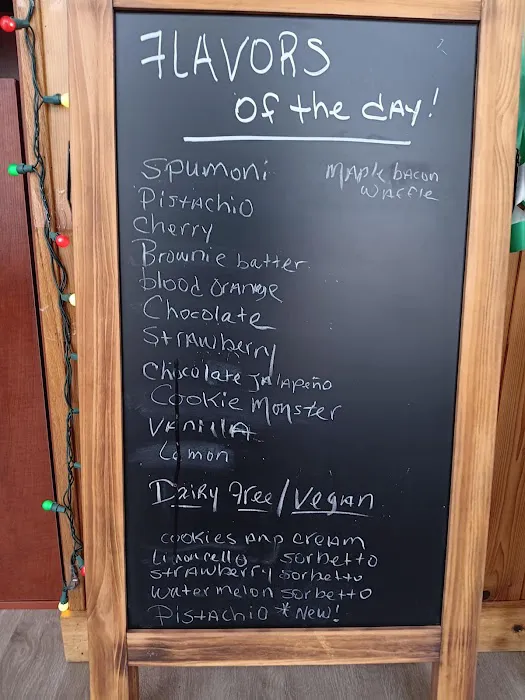 FLAVORS
of the day!
Spumoni
Maple bacon
waffle
Pistachio
Cherry
Brownie batter
blood orange
Chocolate
Strawberry
Chocolate Jalapeño
Cookie Monster
Vanilla
Lemon
Dairy Free/Vegan
cookies and cream
Limoncello sorbetto
strawberry sorbetto
watermelon sorbetto
Pistachio *New!